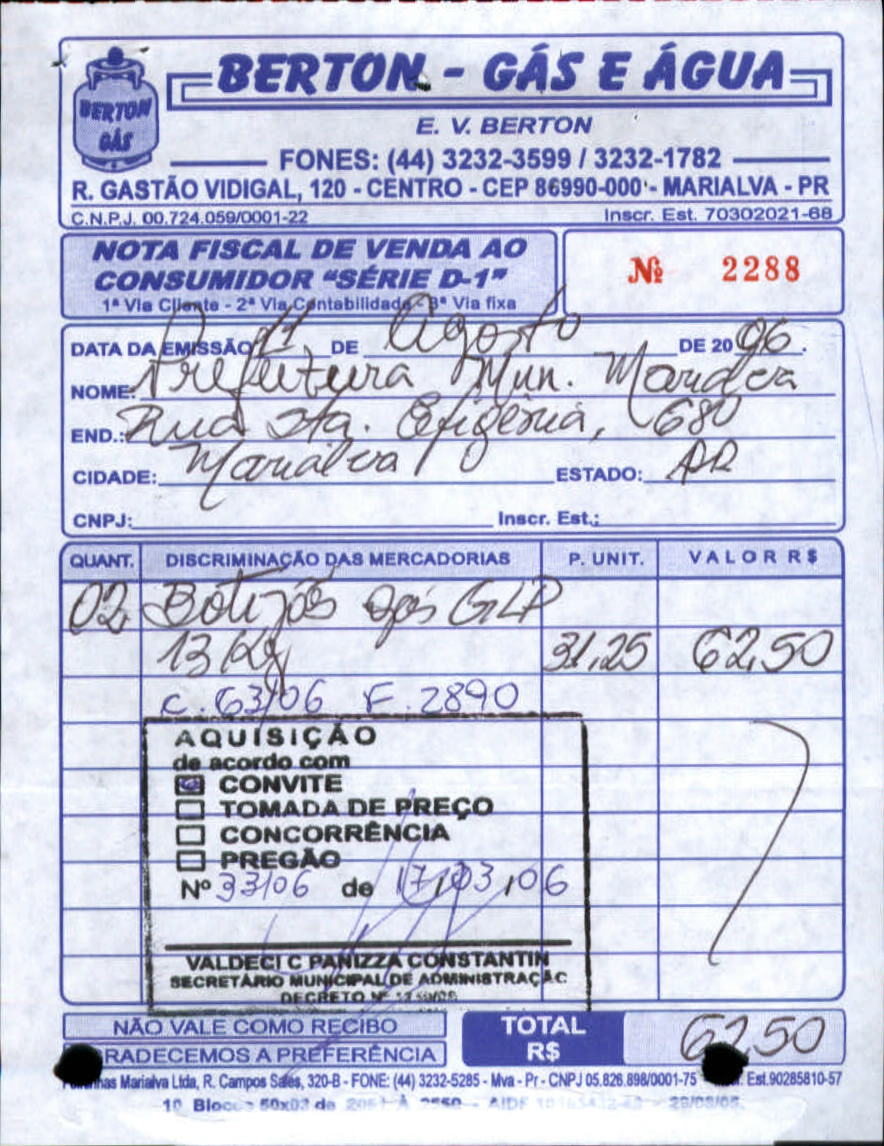 BERTON - GÁS E ÁGUA
BERTON
GÁS
E. V. BERTON
FONES: (44) 3232-3599 / 3232-1782
R. GASTÃO VIDIGAL, 120 - CENTRO - CEP 86990-000 - MARIALVA - PR
C.N.P.J. 00.724.059/0001-22 Inscr. Est. 70302021-68
NOTA FISCAL DE VENDA AO
CONSUMIDOR "SÉRIE D-1"
1ª Via Cliente - 2ª Via Contabilidade - 3ª Via fixa
Nº 2288
DATA DA EMISSÃO 11 DE Agosto DE 2006.
NOME: Prefeitura Mun. Marialva
END.: Rua Sta. Efigênia, 680
CIDADE: Marialva ESTADO: PR
CNPJ: Inscr. Est.:
QUANT. DISCRIMINAÇÃO DAS MERCADORIAS P. UNIT. VALOR R$
02 Botijós gás GLP
13 Kg 31,25 62,50
C. 63/06 F. 2890
AQUISIÇÃO
de acordo com
CONVITE
TOMADA DE PREÇO
CONCORRÊNCIA
PREGÃO
Nº 33/06 de 17/03/06
VALDECI C PANIZZA CONSTANTIN
SECRETÁRIO MUNICIPAL DE ADMINISTRAÇÃO
DECRETO Nº
NÃO VALE COMO RECIBO
RADECEMOS A PREFERÊNCIA
TOTAL
R$ 62,50
Marialva Ltda, R. Campos Sales, 320-B - FONE: (44) 3232-5285 - Mva - Pr - CNPJ 05.826.898/0001-75 Est.90285810-57
10 Blocos 50x03 de À - AIDF